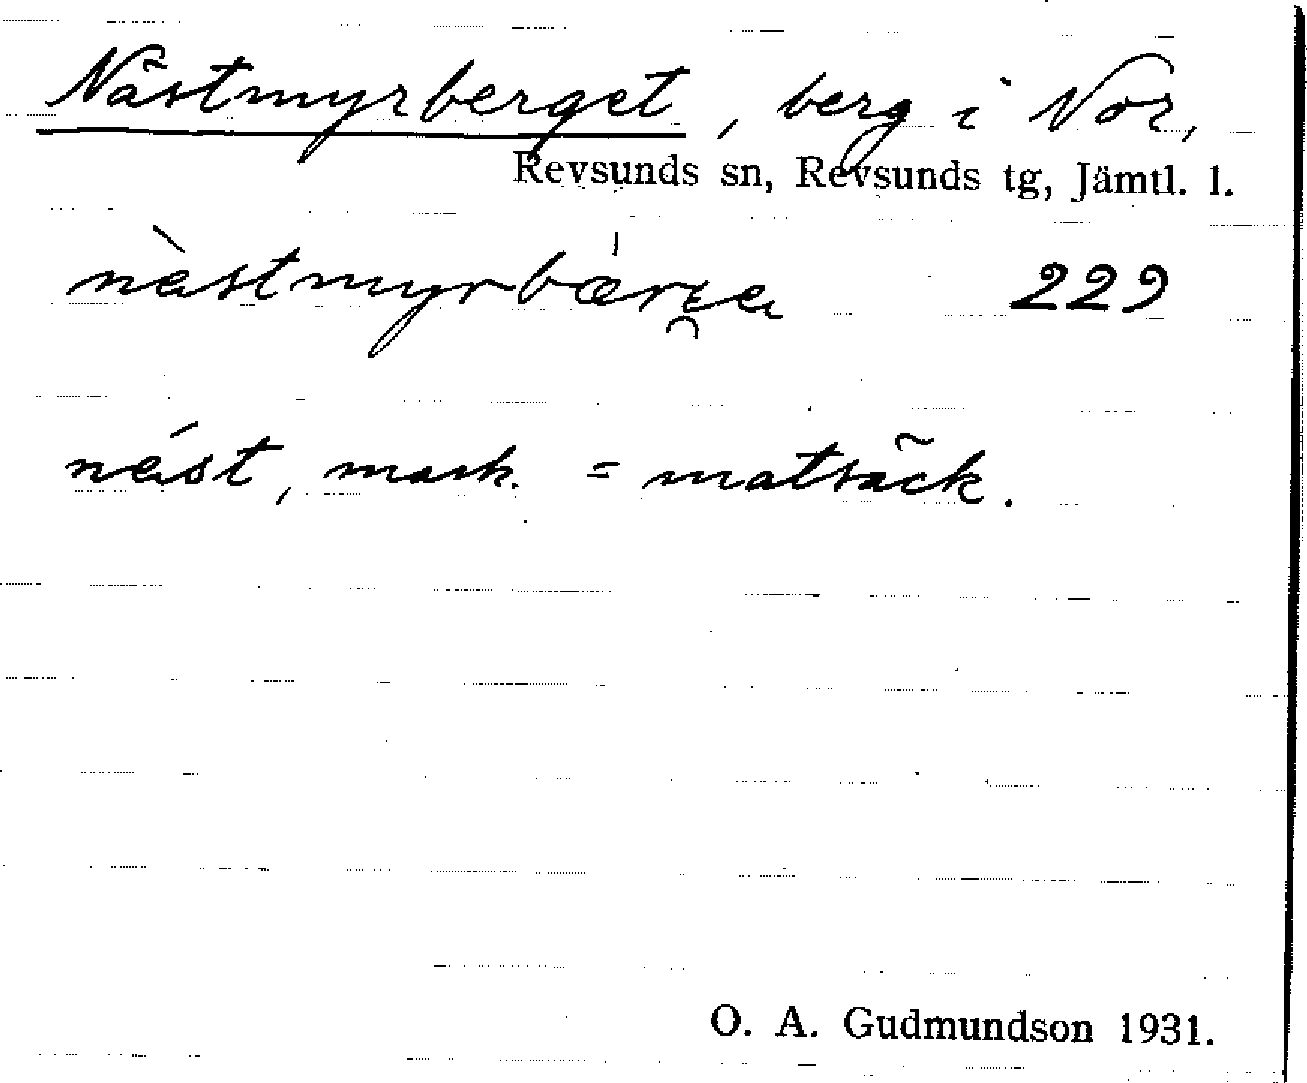 Nästmyrberget, berg i Nor,
Revsunds sn, Revsunds tg, Jämtl. l.
229
nást, mask. = matsäck.
O. A. Gudmundson 1931.